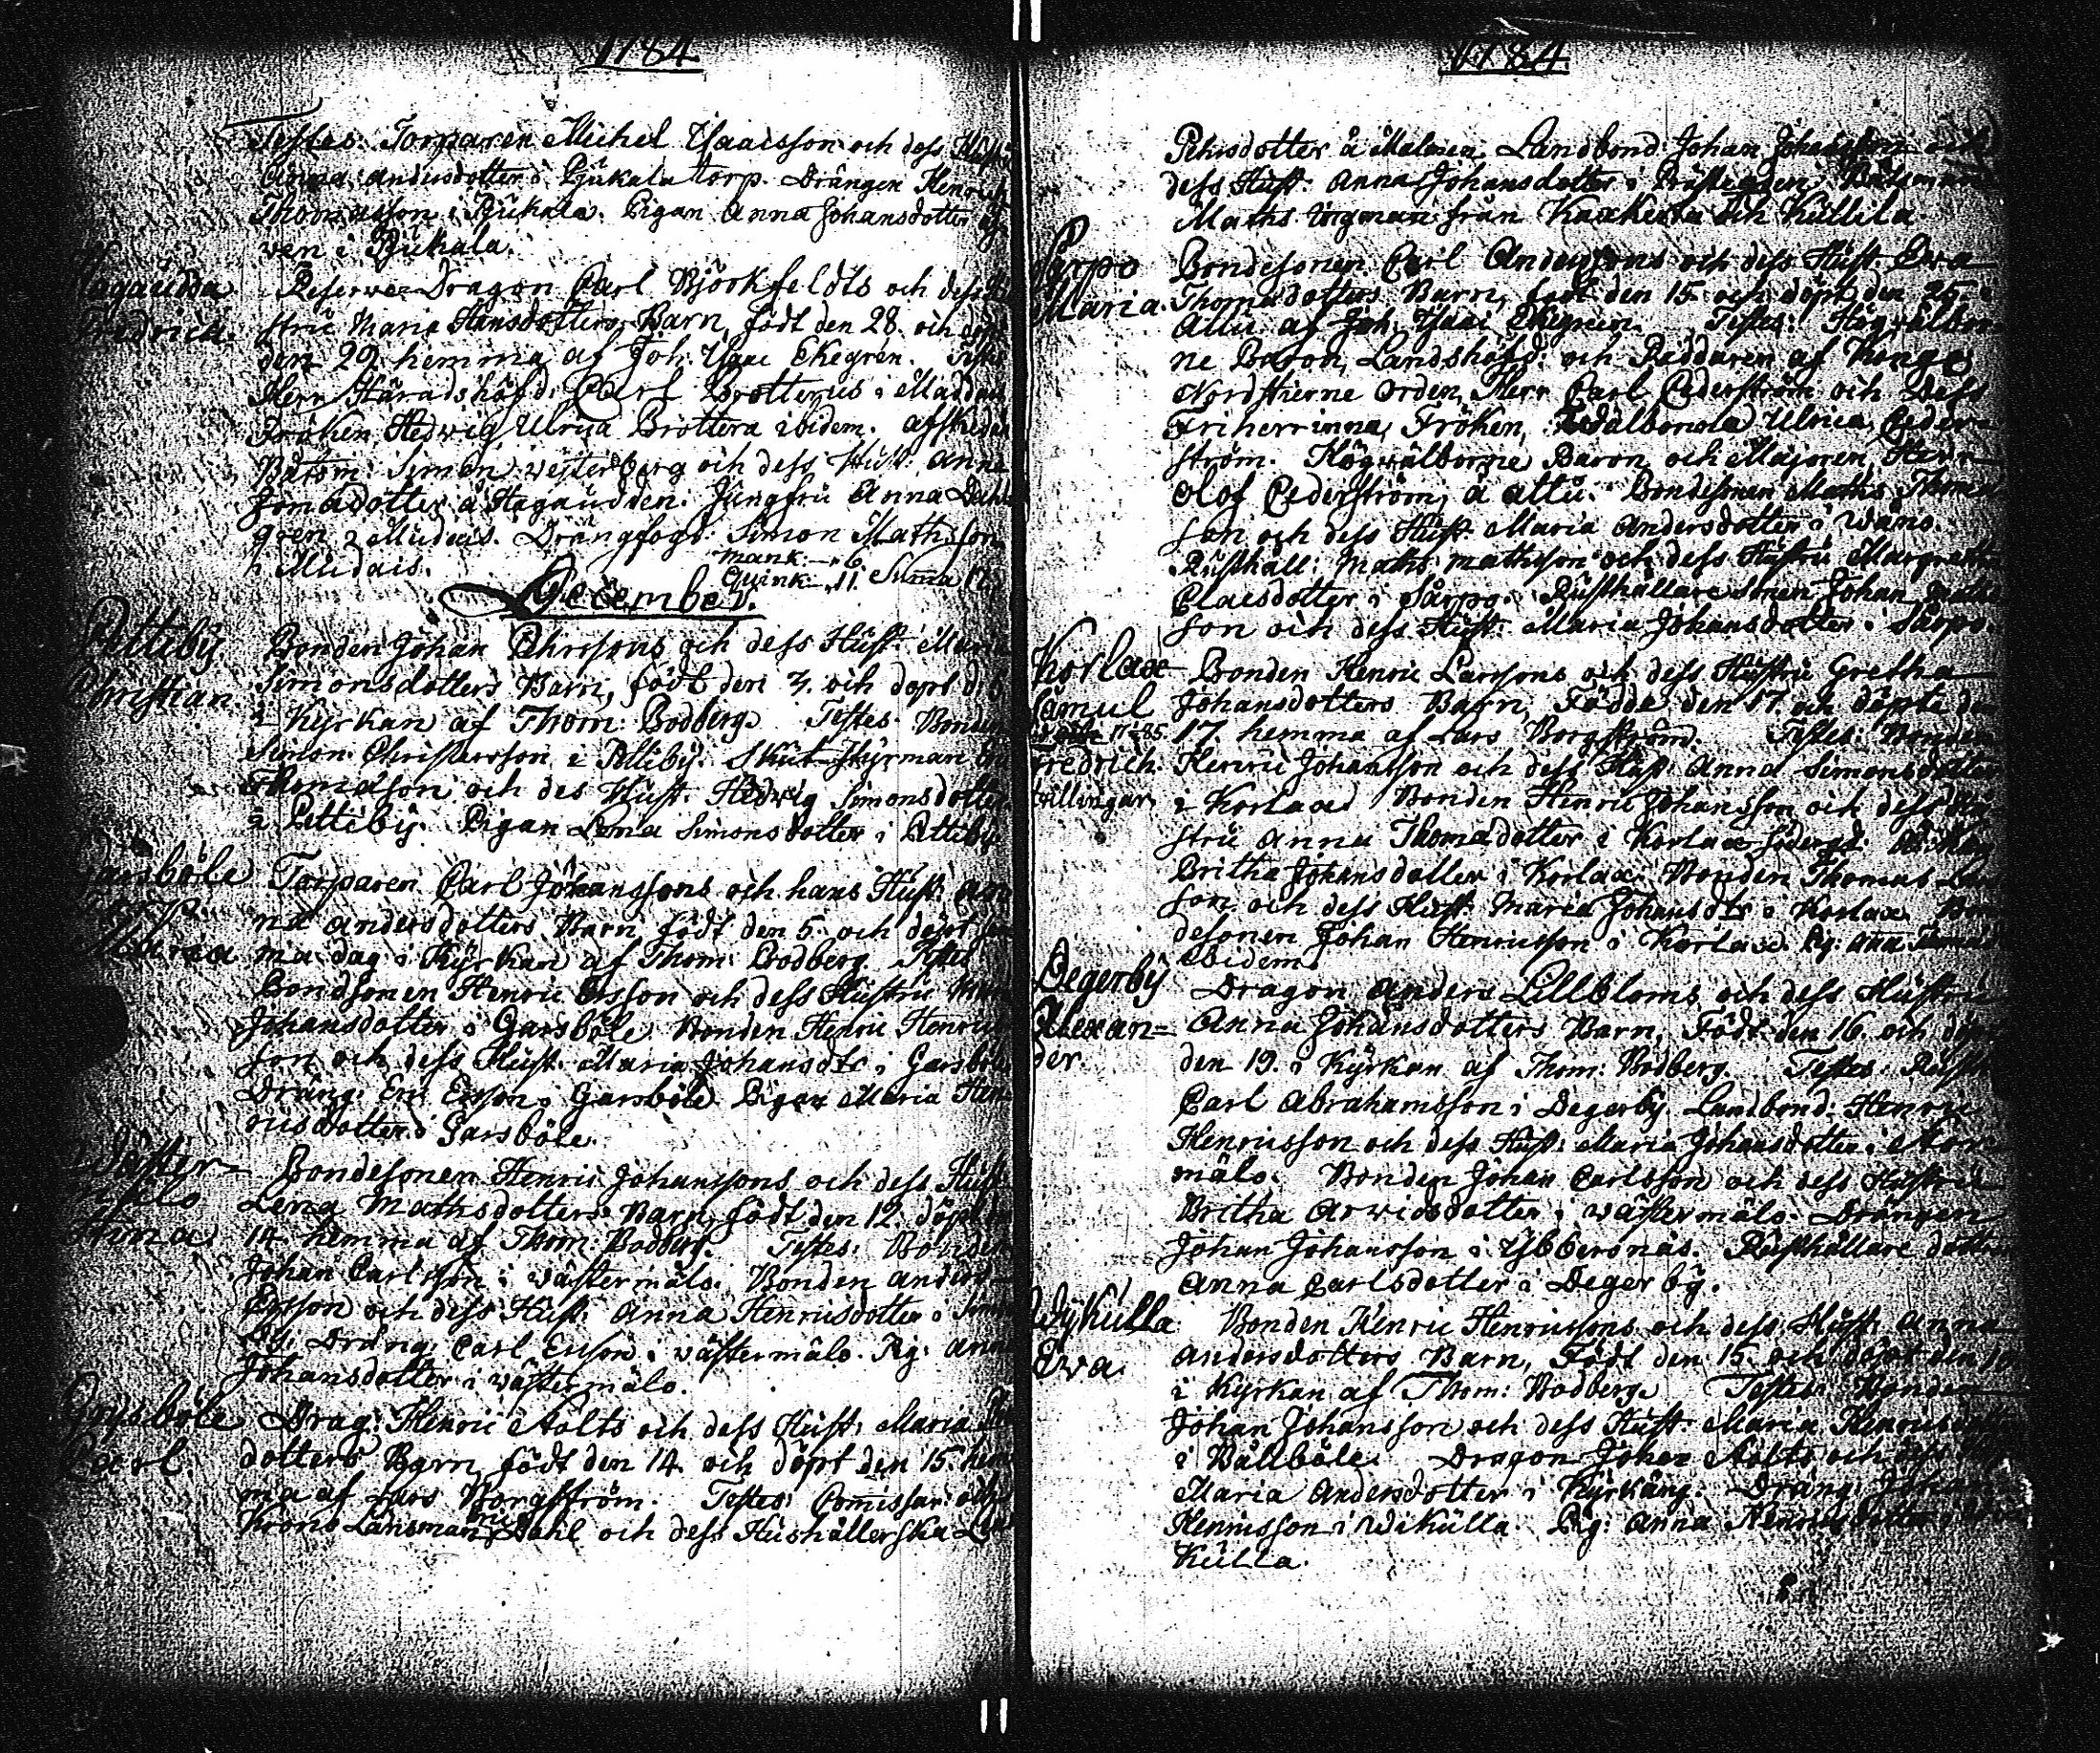 1784
Testes: Torparen Michel Isaacsson och dess Hustru
Anna Andersdotter i Pjukala torp. Drängen Henrich
Thomasson i Pjukala. Pigan Anna Johansdotter
ven i Pjukala.
Hagaudda Reserve Dragon Carl Björkfeldts och dess Hu
Fredrich. stru Maria Hansdotters Barn, födt den 28. och döpt
den 29. hemma af Joh: Isaac Ekegrén. Testes
Herr Häradshöfd: Carl Brotterus i
Fröken Hedwig Ulrica Brottera ibidem. afskedade
Båtsm: Simon Westerberg och dess Hust: Anna
Jonædotter å Hagaudden. Jungfru Anna Dahl
gren i Mudais. Drängfogd: Simon Mathsson
i Mudais. Mank: 6.
Quink: 11. Summa 17.
December.
Pettiby Bonden Johan Pehrssons och dess Hust: Maria
Christian Simonsdotters Barn, födt den 3. och döpt d. 6
i Kyrkan af Thom: Bodberg. Testes. Bonden
Simon Christersson i Pettiby. Skut-Styrman
Thomasson och des Hust: Hedwig Simonsdotter
i Pettiby. Pigan Lena Simonsdotter i Pettiby
Garsböle Torparen Carl Johanssons och hans Hust: An
na Andersdotters Barn födt den 5. och döpt sam
Maria ma dag i Kyrkan af Thom: Bodberg. Testes
Bondsonen Henric Ersson och dess Hustru
Johansdotter i Garsböle. Bonden Henric Henrics
son och dess Hust: Maria Johansdtr i Garsböle
Dräng: Eric Ersson i Garsböle. Pigan Maria Hen
ricsdotter i Garsböle.
Wäster- Bondesonen Henric Johanssons och dess Hust
mälo Lena Mathsdotters Barn, födt den 12. döpt den
Stina 14. hemma af Thom: Bodberg. Testes: Bonden
Johan Carlsson i Wästermälo. Bonden Anders
Ersson och dess Hust: Anna Henricsdotter i
by. Dräng: Carl Ericsson i Wästermälo. Pig: Anna
Johansdotter i Wästermälo.
Grysböle Drag: Henric Stolts och dess Hust: Maria
Carl. dotters Barn, födt den 14. och döpt den 15. hem
ma af Lars Borgström. Testes: Comissar: och
Krono Länsman Dahl och dess Hushållerska
1784.
Pehrsdotter å Malmen. Landbond: Johan Johansson och
dess Hust: Anna Johansdotter i Båtsman
Maths Ungman från Kaakerta och Kullila
Särpo Bondesonen Carl Anderssons och dess Hust: Ewa
Maria Thomædotters Barn, födt den 15. och döpt den 25. i
Attu af Joh: Isaac Ekegrén. Testes: Högwälbor
ne Baron, Landshöfd: och Riddaren af Kongs
Nordstierne Orden, Herr Carl Cederström och Dess
Friherrinna, Fröken, Wälborna Ulrica Ceder-
ström. Högwälborne Baron och Majoren Herr
Olof Cederström å Attu. Bondesonen Maths Thomæ
son och dess Hust: Maria Andersdotter i Wäno.
Rusthåll: Maths Mathsson och dess Hustru Margretha
Claesdotter i Särpo. Rusthållare Sonen Johan Maths
son och dess Hust: Maria Johansdotter i Särpo.
Korlax Bonden Henric Larssons och dess Hustru Gretha
Samul Johansdotters Barn, Födde den 17. och döpte den
1785 17. hemma af Lars Borgström. Testes: Bonden
Fredrich. Henric Johansson och dess Hust: Anna Simonsdotter
tvillingar i Korlax. Bonden Henric Johansson och dess Hu
stru Anna Thomædotter i Korlax Södergd:
Britha Johansdotter i Korlax. Bonden Thomas Lars
son och dess Hust: Maria Johansdtr i Korlax. Bon
desonen Johan Henricsson i Korlax. Pig: Anna
ibidem.
Degerby Dragon Anders Lillbloms och dess Hustru
Alexan= Anna Johansdotters Barn, Födt den 16. och döpt
der. den 19. i Kyrkan af Thom: Bodberg. Testes. Rusth
Carl Abrahamsson i Degerby. Landbond: Henric
Henricsson och dess Hust: Maria Johansdotter i
mälo. Bonden Johan Carlsson och dess Hustru
Britha Arwidsdotter i Wästermälo. Drängen
Johan Johansson i Ybbersnäs. Rusthållare dotter
Anna Carlsdotter i Degerby.
Wykulla Bonden Henric Henricssons och dess Hust: Anna
Ewa. Andersdotters Barn, Födt den 15. och döpt den 19.
i Kyrkan af Thom: Bodberg. Testes: Bonden
Johan Johansson och dess Hust: Maria Henricsdotter
i Bällböle. Dragon Johan Stolts och dess
Maria Andersdotter i Kyrkäng. Dräng: Johan
Henricsson i Wikulla. Pig: Anna Henricsdotter i Wi
kulla.